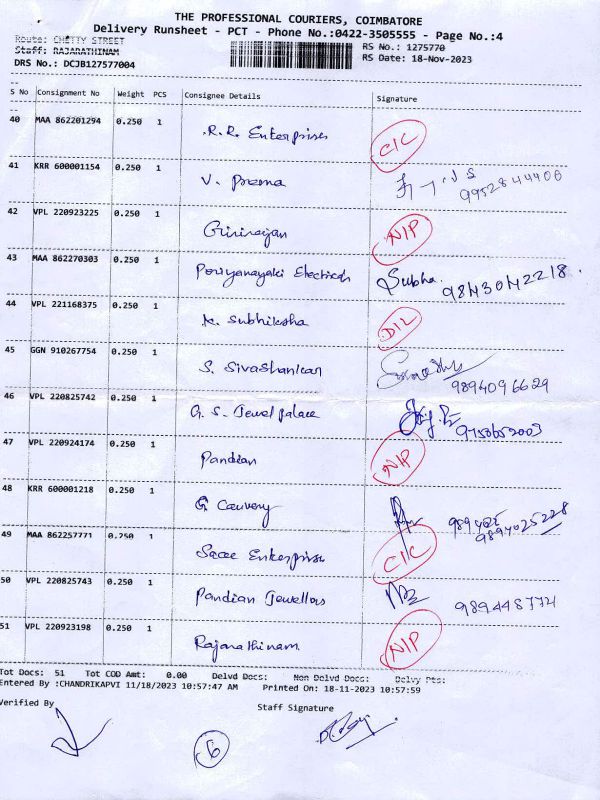 THE PROFESSIONAL COURIERS, COIMBATORE
Delivery Runsheet - PCT - Phone No.:0422-3505555 - Page No.:4
Route: CHETTY STREET
Staff: RAJARATHINAM
DRS No.: DCJB127577004
RS No.: 1275770
RS Date: 18-Nov-2023
S No Consignment No Weight PCS Consignee Details Signature
40 MAA 862201294 0.250 1 R.R. Enterprises C/C
41 KRR 600001154 0.250 1 V. Prema 9952844406
42 VPL 220923225 0.250 1 Girirajan N/P
43 MAA 862270303 0.250 1 Periyanayaki Electricals Subha. 9843042218.
44 VPL 221168375 0.250 1 K. Subhiksha D/L
45 GGN 910267754 0.250 1 S. Sivashankar 9894096629
46 VPL 220825742 0.250 1 G. S. Jewel palace
47 VPL 220924174 0.250 1 Pandian N/P
48 KRR 600001218 0.250 1 G Cauvery 9894025228
49 MAA 862257771 0.250 1 Enterprises C/C
50 VPL 220825743 0.250 1 Pandian Jewellors 989448774
51 VPL 220923198 0.250 1 Rajarathinam N/P
Tot Docs: 51 Tot COD Amt: 0.00 Delvd Docs: Non Delvd Docs: Delvy Pts:
Entered By :CHANDRIKAPVI 11/18/2023 10:57:47 AM Printed On: 18-11-2023 10:57:59
Verified By
Staff Signature